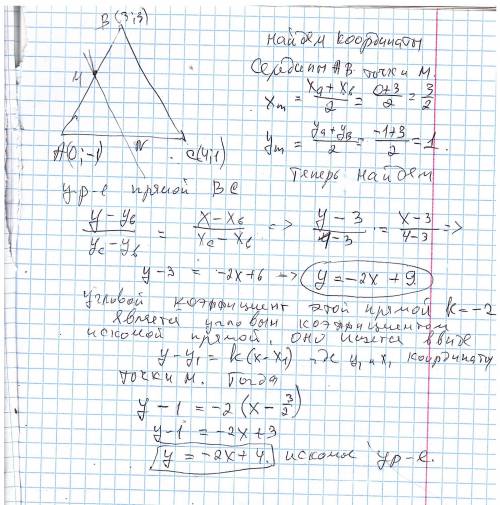 B(3;3)
M
A(0;-1)
N
C(4;1)
найдем координаты
середины AB точки M.
x_m = (x_a + x_b)/2 = (0+3)/2 = 3/2
y_m = (y_a + y_b)/2 = (-1+3)/2 = 1.
теперь найдем
ур-е прямой BC
(y - y_b)/(y_c - y_b) = (x - x_b)/(x_c - x_b) => (y - 3)/(1-3) = (x-3)/(4-3) =>
y-3 = -2x+6 => y = -2x+9.
угловой коэффициент этой прямой k = -2
является угловым коэффициентом
искомой прямой, оно ищется ввиде
y-y₁ = k(x-x₁), где y₁ и x₁ координаты
точки M. Тогда
y - 1 = -2(x - 3/2)
y-1 = -2x+3
y = -2x+4. искомое ур-е.